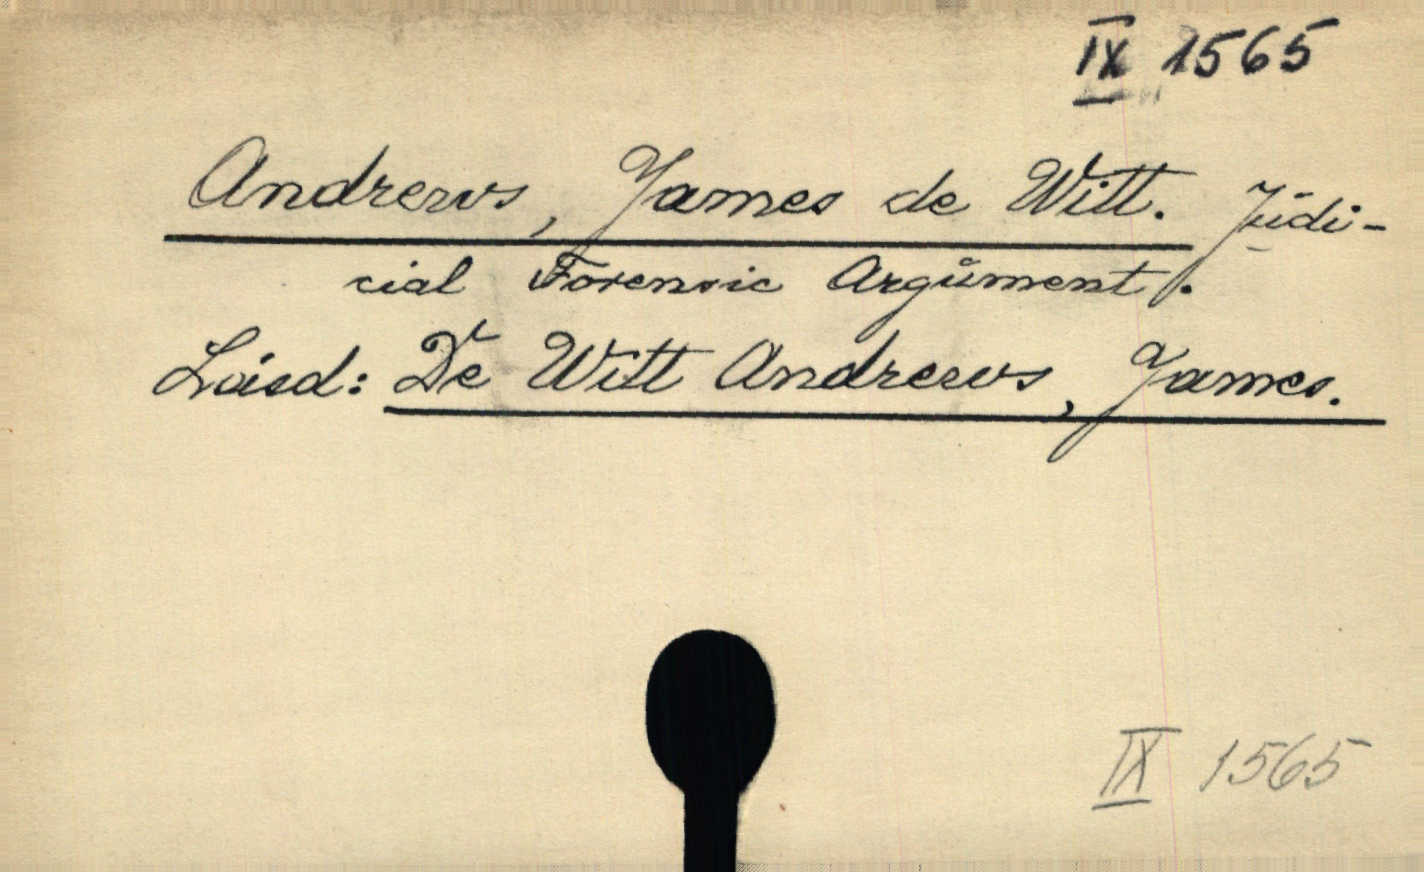 IX 1565
Andrews, James de Witt. Judi-
cial Forensic Argument.
Lásd: De Witt Andrews, James.
IX 1565